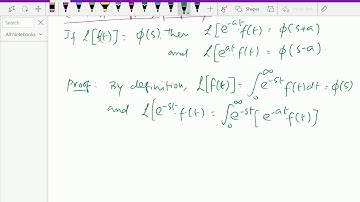 All Notebooks
If L[f(t)] = φ(s) then L[e^{-at} f(t) = φ(s+a)
and L[e^{at} f(t) = φ(s-a)
Proof: By definition, L[f(t)] = ∫_0^∞ e^{-st} f(t) dt = φ(s)
and L[e^{-st} f(t) = ∫_0^∞ e^{-st} [e^{-at} f(t)]